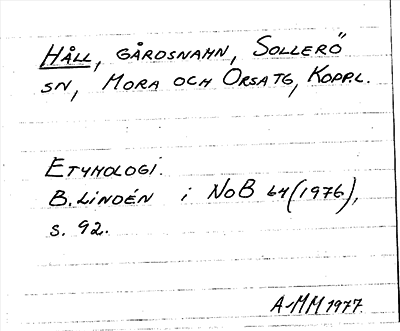 HÅLL, GÅRDSNAMN, SOLLERÖ
SN, MORA OCH ORSA TG, KOPPL.
ETYMOLOGI.
B. LINDÉN i NoB 64 (1976),
s. 92.
A-MM 1977.